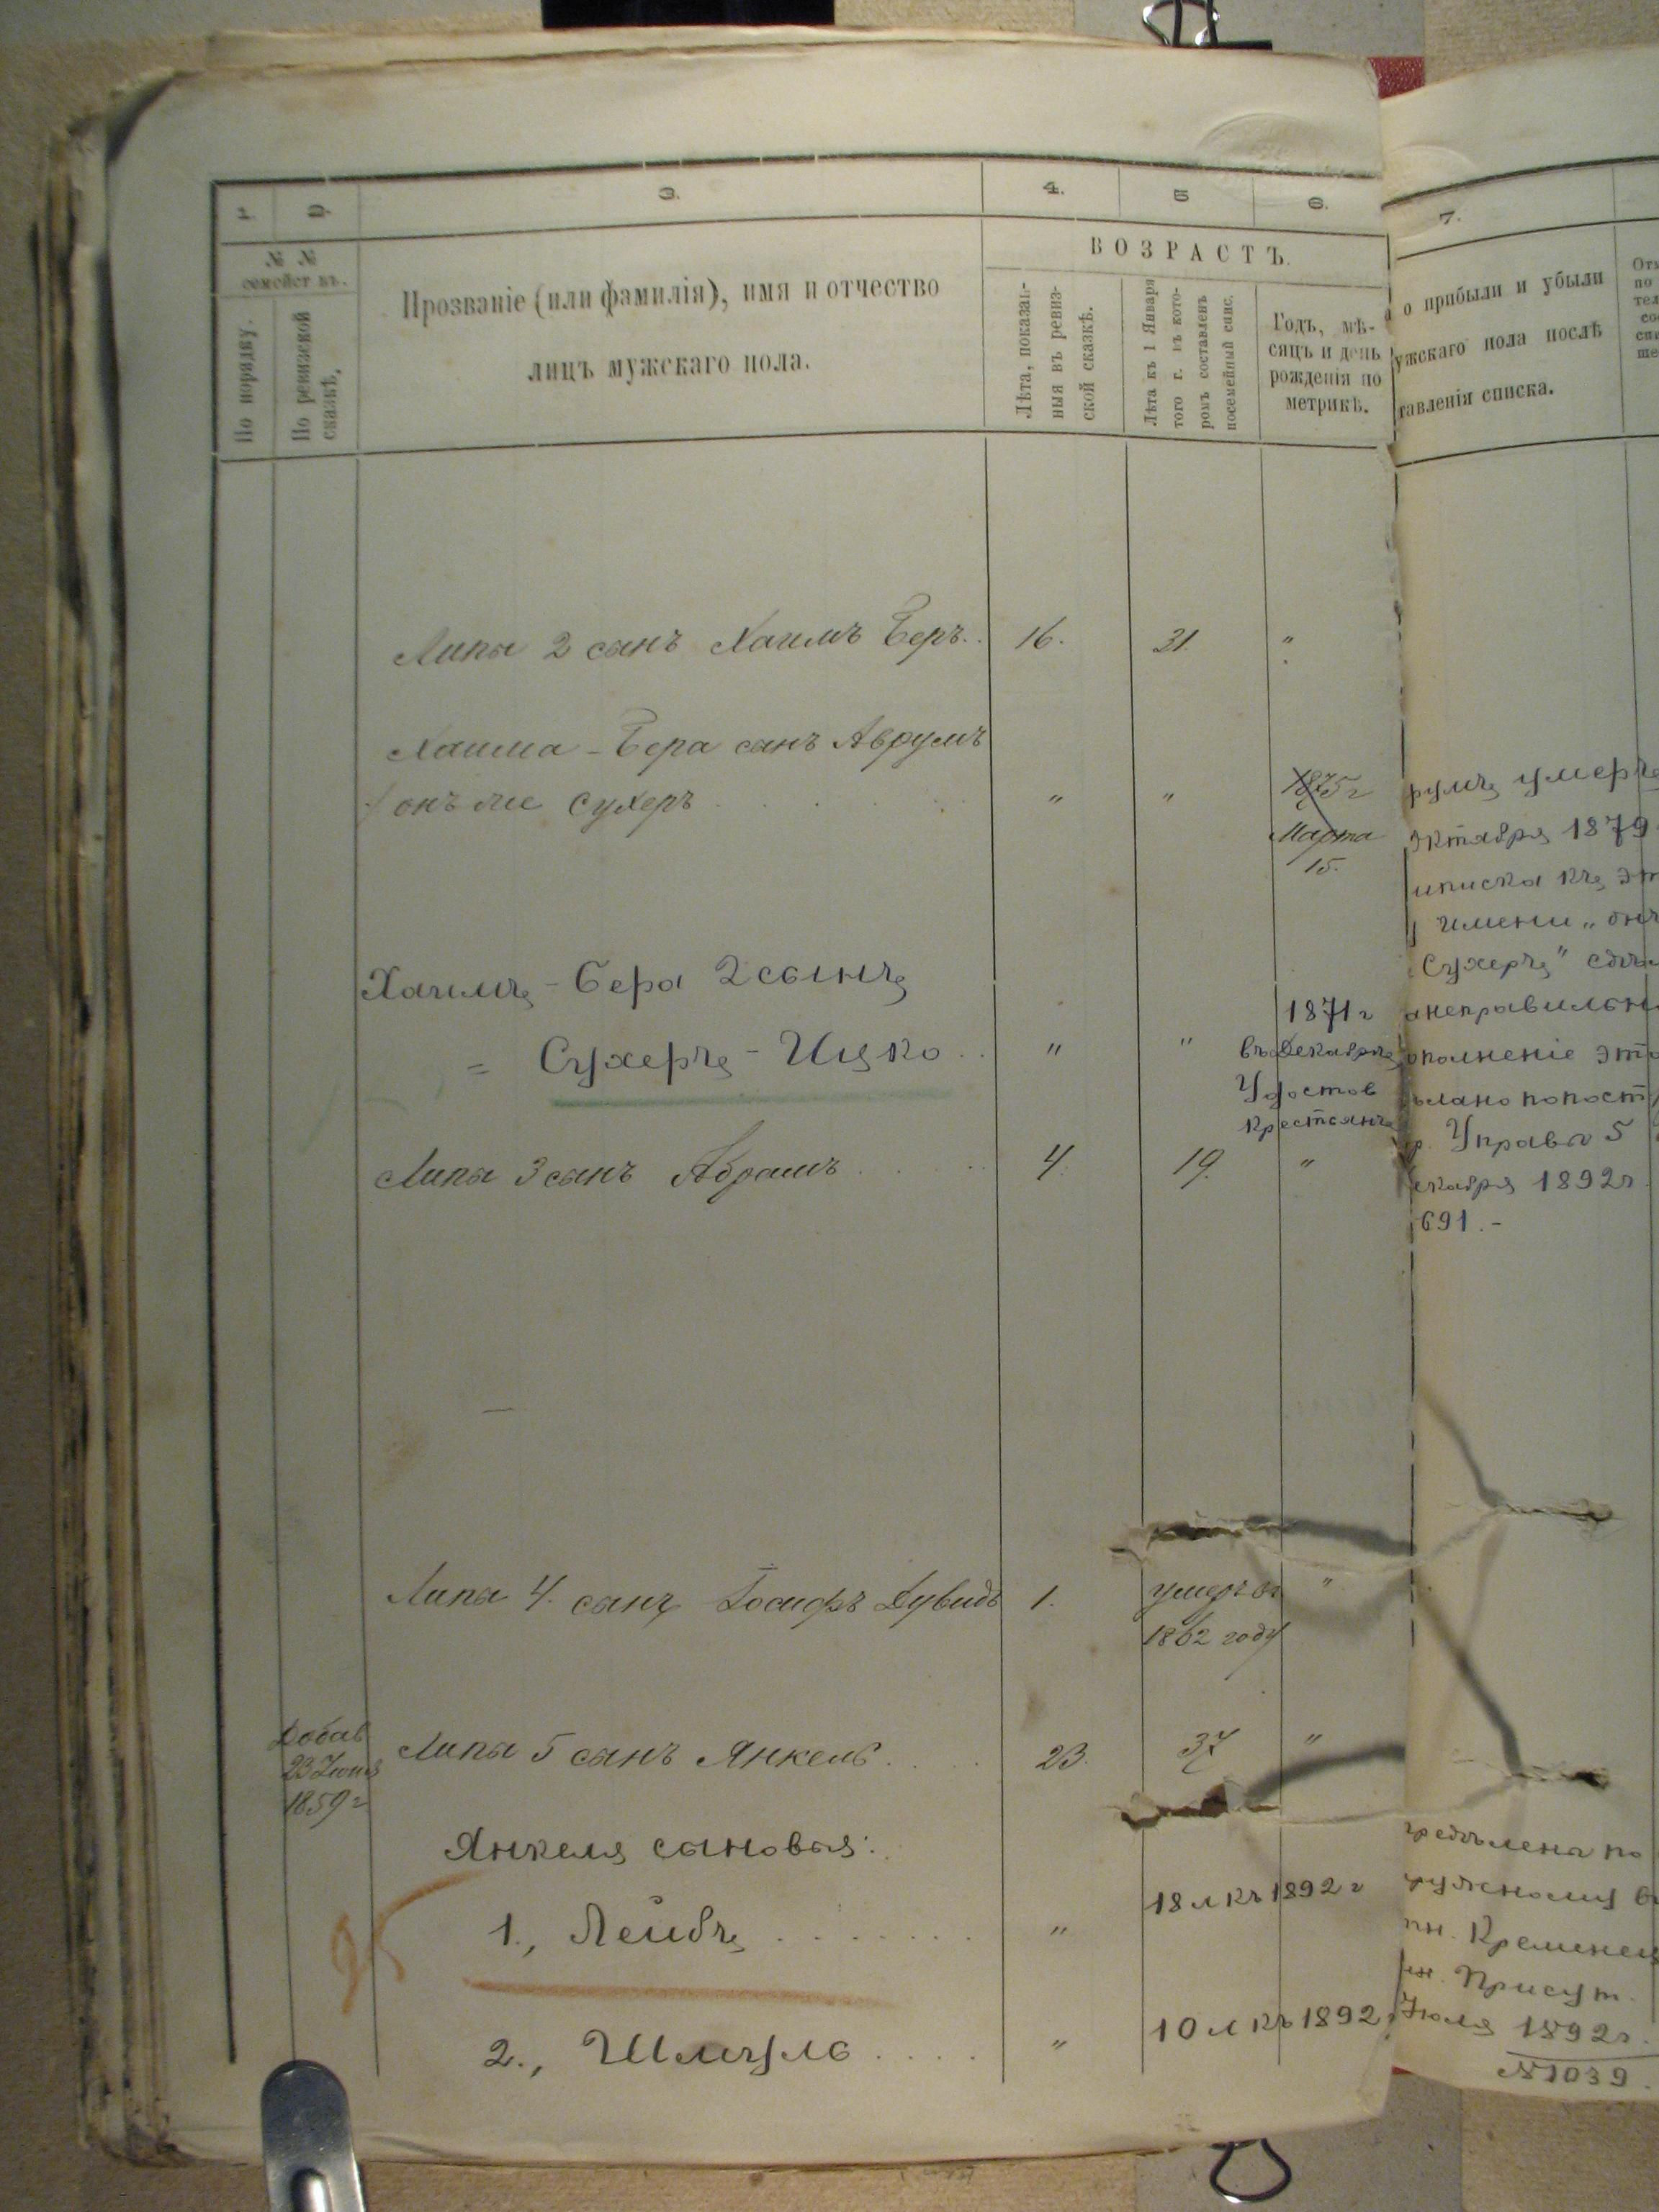 1.
2.
3.
4.
5
6.
7.
№ №
семейст въ.
По порядку.
По ревизской
сказкѣ.
Прозваніе (или фамилія), имя и отчество
лицъ мужскаго пола.
ВОЗРАСТЪ.
Лѣта, показан-
ныя въ ревиз-
ской сказкѣ.
Лѣта къ 1 Января
того г. въ кото-
ромъ составленъ
посемейный спис.
Годъ, мѣ-
сяцъ и день
рожденія по
метрикѣ.
о прибыли и убыли
ужскаго пола послѣ
тавленія списка.
Липы 2 сынъ Хаимъ Беръ.. 16. 31. "
Хаима-Бера сынъ Аврумъ
онъ же Сухеръ " " 1875 г
Марта
15.
румъ умеръ
октября 1879
иписка къ эт
имени „онъ
Сухеръ" сдѣл
Хаимъ-Бера 2 сынъ
= Сухеръ-Ицко.. " " 1871 г
въ Декабрѣ
Удостов
Крестьянъ
неправильн
ополненіе это
ѣлано попост
р. Управы 5
екабря 1892 г.
691.-
Липы 3 сынъ Абрамъ 4. 19. "
Липы 4. сынъ Іосифъ Дувидъ 1. умеръ въ "
1862 году
Добав
23 Іюня
1859 г
Липы 5 сынъ Янкель 23. 37 "
Янкеля сыновья:
1., Лейбъ " 18 л къ 1892 г
25
2., Шмуль " 10 л къ 1892
предѣлена по
ружному
пн. Кременец
Присут.
Іюля 1892 г.
№ 1039.